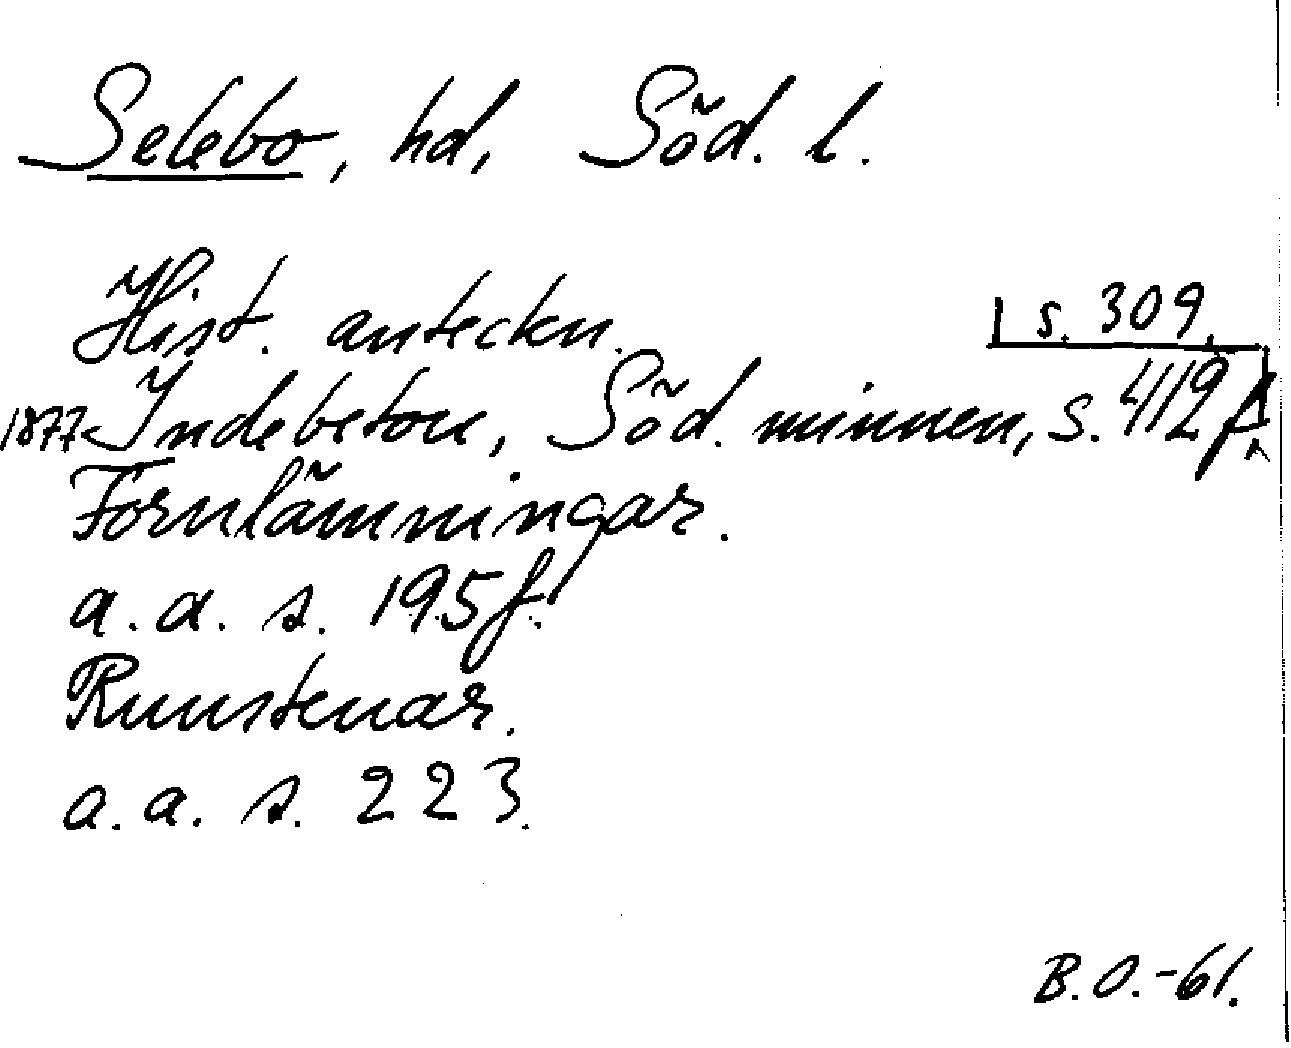 Selebo, hd, Söd. l.
Hist. anteckn. s. 309.
1877 Indebetou, Söd. minnen, s. 412 f.
Fornlämningar.
a. a. s. 195 f.
Runstenar.
a. a. s. 223.
B.O.-61.